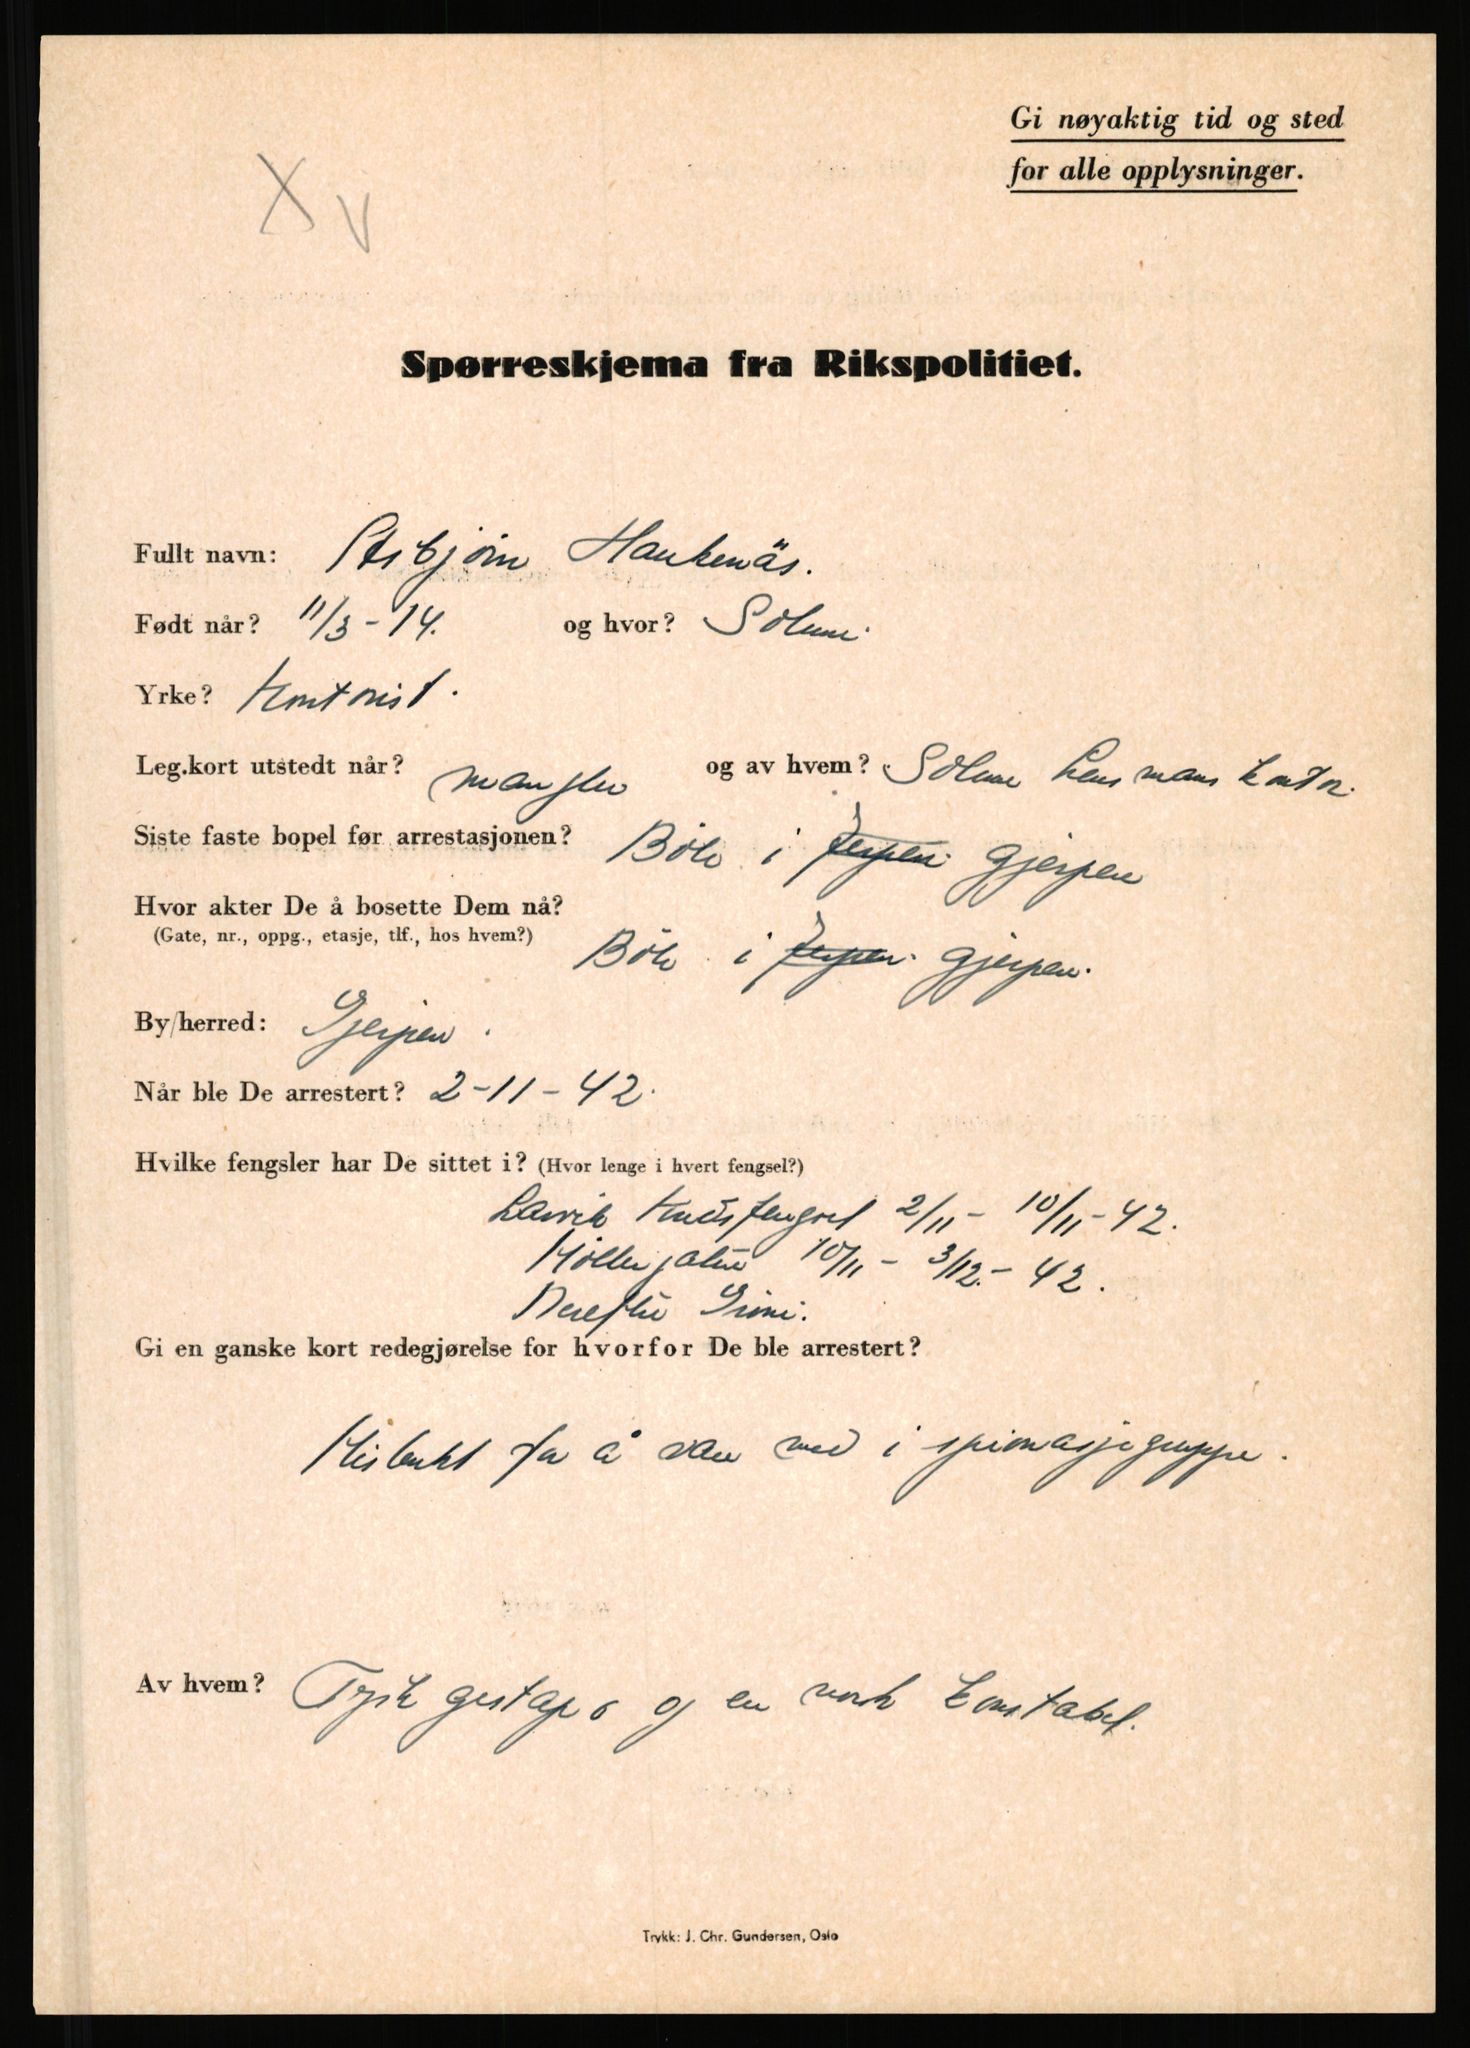 Gi nøyaktig tid og sted
for alle opplysninger.
X V
Spørreskjema fra Rikspolitiet.
Fullt navn: Asbjörn Haukenäs.
Født når? 11/3-14. og hvor? Solum.
Yrke? Kontorist.
Leg.kort utstedt når? mangler og av hvem? Solum Lensmanskontor.
Siste faste bopel før arrestasjonen? Böle i Jerpen. Gjerpen
Hvor akter De å bosette Dem nå?
(Gate, nr., oppg., etasje, tlf., hos hvem?) Böle i Jerpen. Gjerpen.
By/herred: Gjerpen.
Når ble De arrestert? 2-11-42.
Hvilke fengsler har De sittet i? (Hvor lenge i hvert fengsel?)
Larvik Kretsfengsel 2/11- 10/11-42.
Möllergaten 10/11- 3/12.-42.
Derefter Grini.
Gi en ganske kort redegjørelse for hvorfor De ble arrestert?
Mistenkt for å være med i spionasjegruppe.
Av hvem? Tysk gestapo og en norsk konstabel.
Trykk: J. Chr. Gundersen, Oslo